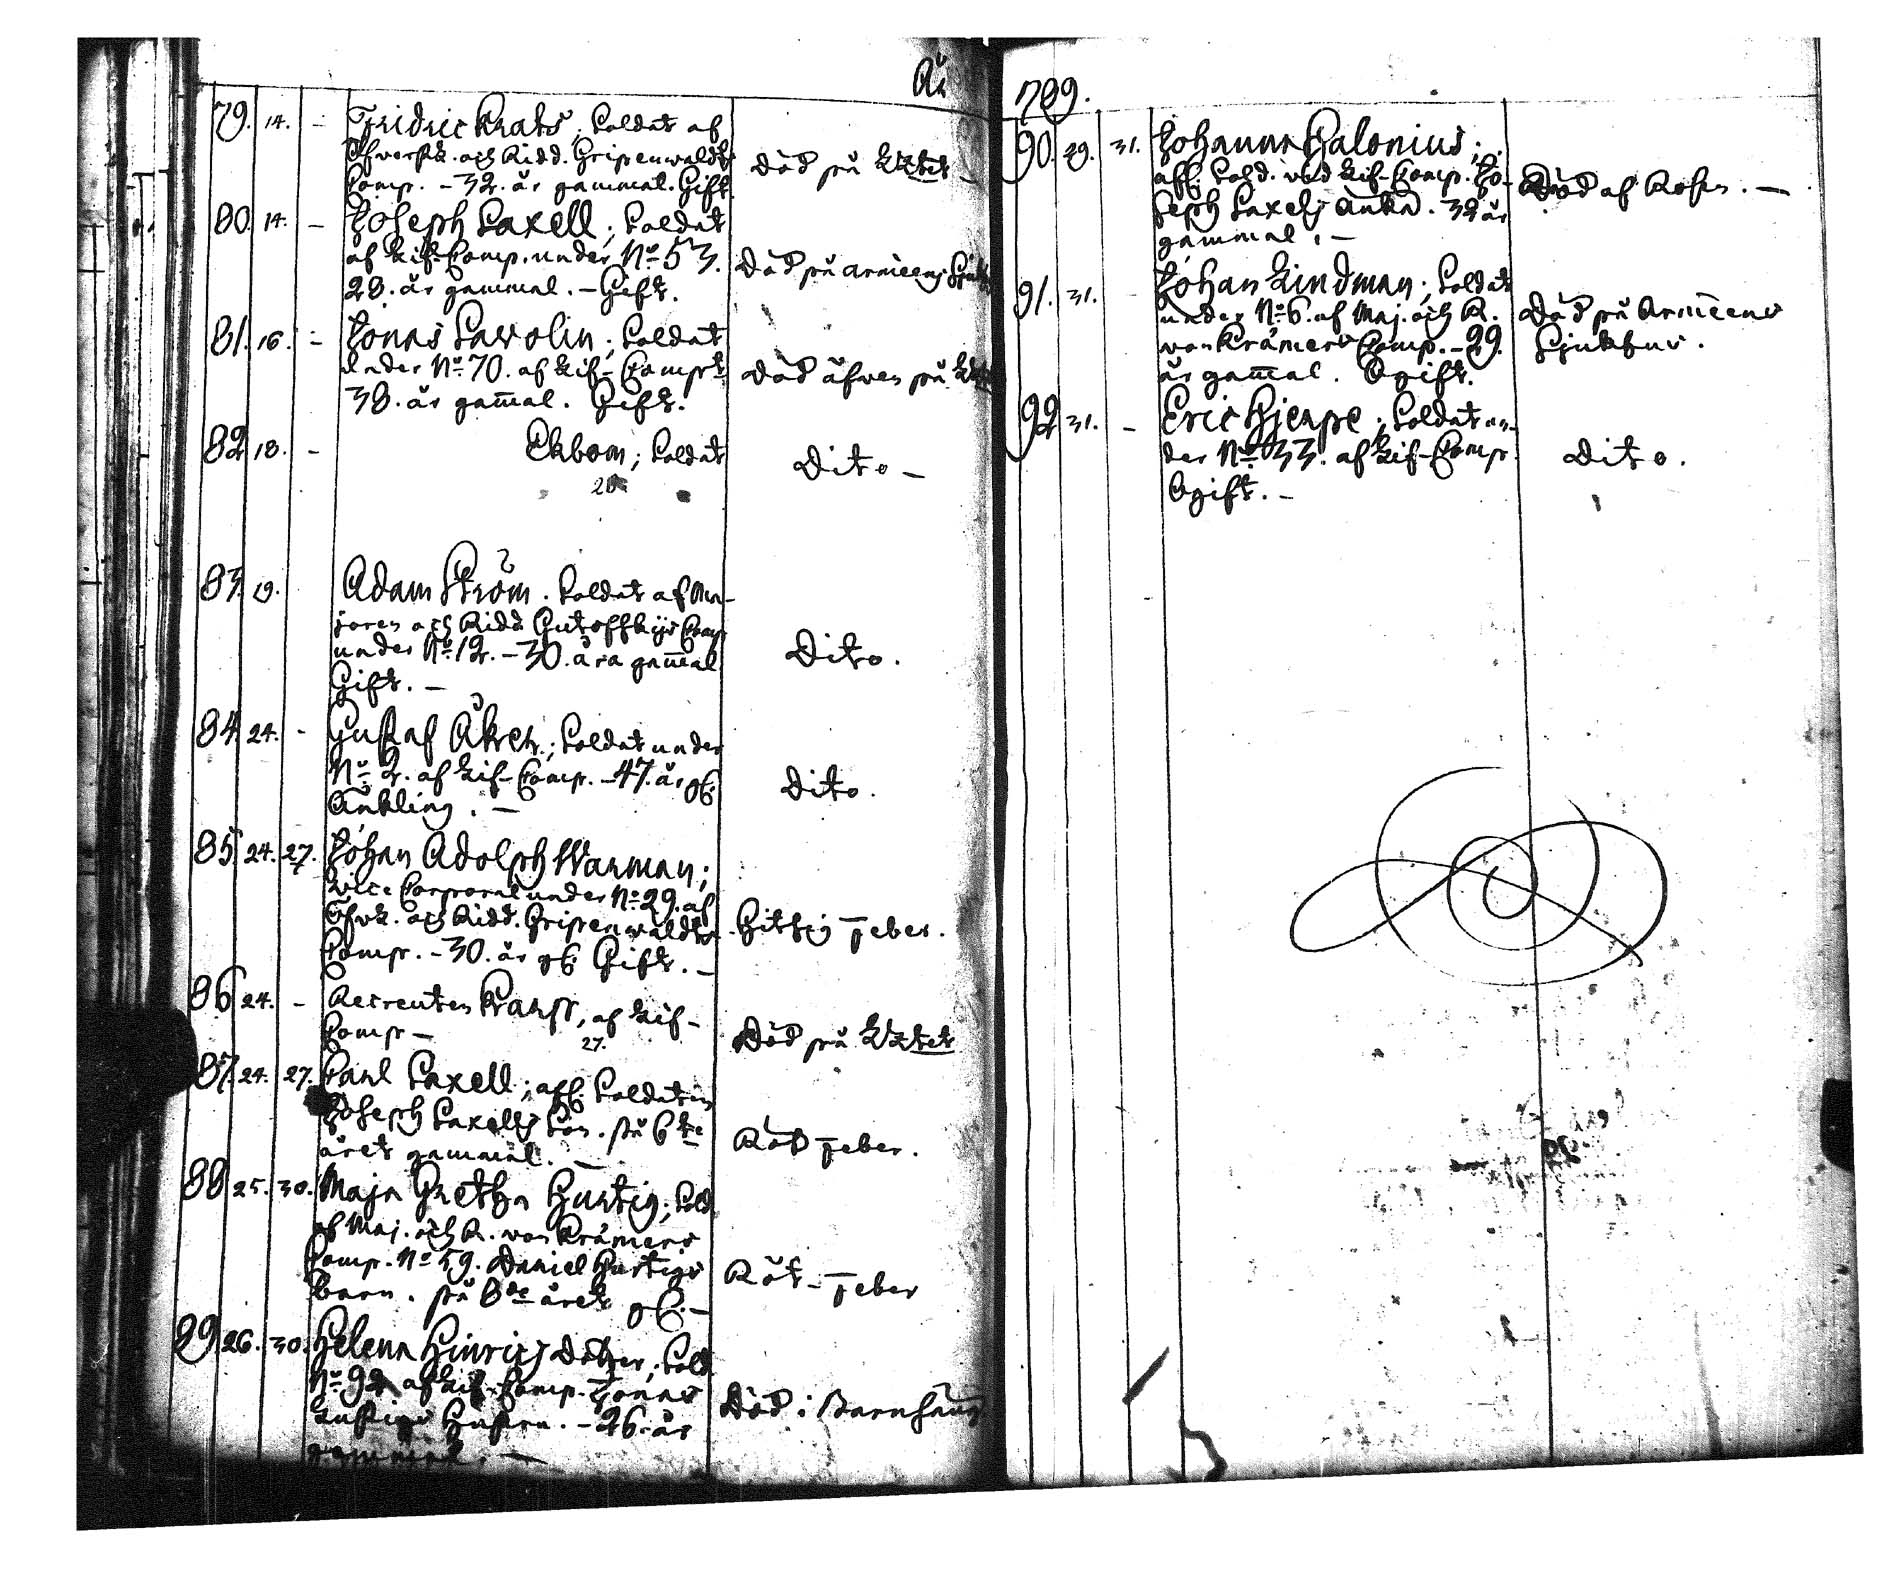 År
79. 14. - Fridric Krats; Soldat af
Öfverstl. och Ridd. Gripenwaldts
Comp. - 32. år gammal. Gift. Död på
80. 14. - Joseph Saxell; Soldat
af Lif-Comp. under No 53.
28. år gammal. - Gift. Död på Armeens Sjukh
81. 16. - Jonas Savolin; Soldat
under No 70. af Lif-Comp.
38. år gamal. Gift. Död äfven på
82 18. - Ekbom; Soldat Dito -
83. 19. Adam Ström. Soldat af Ma-
joren och Ridd. Comp.
under No 12. - 30. åra gamal
Gift. - Dito.
84. 24. - Gustaf Åkren; Soldat under
No 2. af Lif-Comp. - 47. år gl.
Änkling. - Dito.
85 24. 27. Johan Adolph Warman;
Vice Corporal under No 29. af
Öfvl. och Ridd. Gripenwaldts
Comp. - 30. år gl. Gift. - Hitsig feber.
86 24. - Recreuten af Lif-
Comp - Död på
27.
87. 24. 27. Paul Saxell; afl. Soldaten
Joseph Saxells Son. på 6te
året gammal. - Röt feber.
88 25. 30. Maja Gretha Hurtig; Sold.
af Maj. och R. von Kræmers
Comp. No 59. Daniel Hurtigs
Barn. på 8de året gl. - Röt-feber
89. 26. 30. Helena Hinrics dotter; Sold.
No 92 af Lif-Comp. Jonas
Hustru. - 26. år
gammal. - Död i Barnsäng
789.
90. 29. 31. Johanna Palonius;
afl. Sold. vid Lif-Comp. Jo-
seph Saxells Änka. 32 år
gammal. - Död af Rosen. -
91. 31. - Johan Lindman; Soldat
under No 6. af Maj. och R.
von Kræmers Comp. - 29.
år gamal. Ogift. Död på Armeens
Sjukhus.
92 31. - Eric Hjerpe; Soldat un-
der No 33. af Lif-Comp.
Ogift. - Dito.